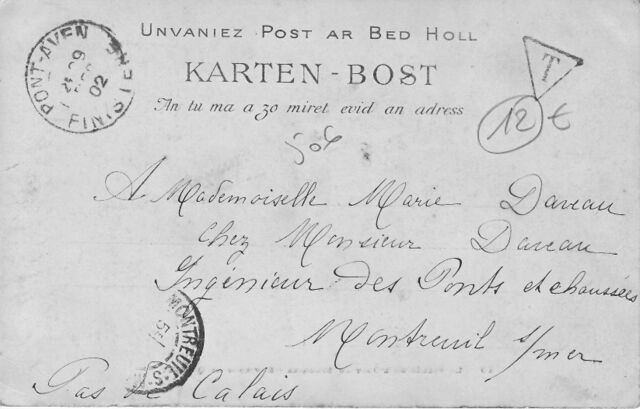 Unvaniez Post ar Bed Holl
KARTEN-BOST
An tu ma a zo miret evid an adress
PONT-AVEN
02
FINISTÈRE
T
12 €
A Mademoiselle Marie Daveau
chez Monsieur Daveau
Ingénieur des Ponts et chaussées
Montreuil s/mer
Pas de Calais
MONTREUIL-S